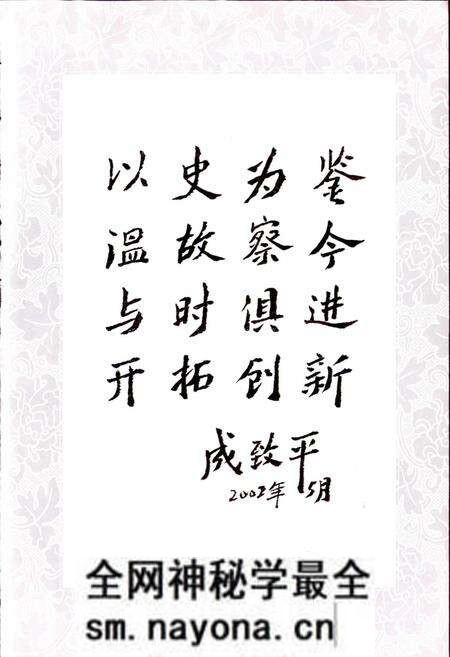 以史为鉴
温故察今
与时俱进
开拓创新
成致平
2002年5月
全网神秘学最全
sm.nayona.cn